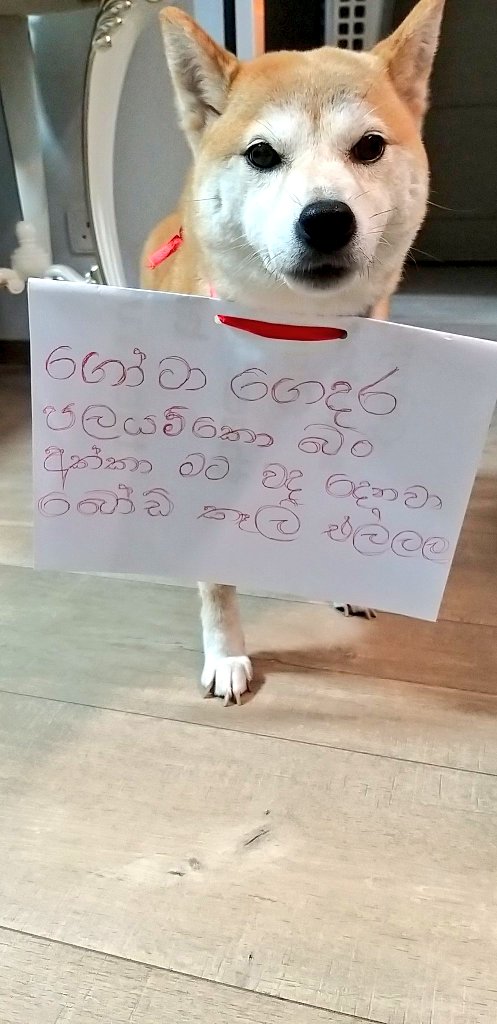 ගෝටා ගෙදර
පලයම්කො බං
අක්කා මට වද දෙනවා
බෝඩ් කෑලි එල්ලල